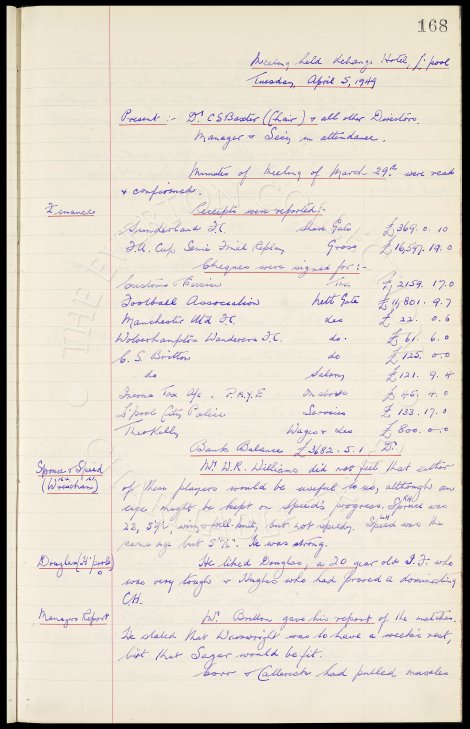 168
Meeting held Exchange Hotel, L'pool
Tuesday, April 5, 1949
Present :- Dr C S Baxter (Chair) & all other Directors.
Manager & Secy in attendance.
Minutes of Meeting of March 29th were read
& confirmed.
Finance Receipts were reported:-
Sunderland F.C. Share Gate £369. 0. 10
F.A. Cup Semi Final Replay Gross £16,597. 19. 0
Cheques were signed for :-
Customs & Excise Tax £2159. 17. 0
Football Association Nett Gate £11,801. 9. 7
Manchester Utd F.C. do £ 22. 0. 6
Wolverhampton Wanderers F.C. do. £ 61. 6. 0
C. S. Britton do £125. 0. 0
do Salary £121. 9. 4
Income Tax A/c. P.A.Y.E £ 45. 4. 0
L'pool City Police Services £ 133. 17. 0
Theo Kelly Wages & £ 800. 0. 0
Bank Balance £3682. 5. 1 Dr
Spruce & Speed Mr W.R. Williams did not feel that either
(Wrexham) of these players would be useful to us, although an
eye might be kept on Speed's progress. Spruce was
23, but not speedy. Speed was the
same age but He was strong.
Douglas (H'pools) He liked Douglas, a 20 year old I.F. who
was very tough & Hughes who had proved a dominating
CH.
Managers Report Mr. Britton gave his report of the matches.
He stated that Wainwright was to have a week's rest,
but that Sagar would be fit.
Corr & Catterick had pulled muscles